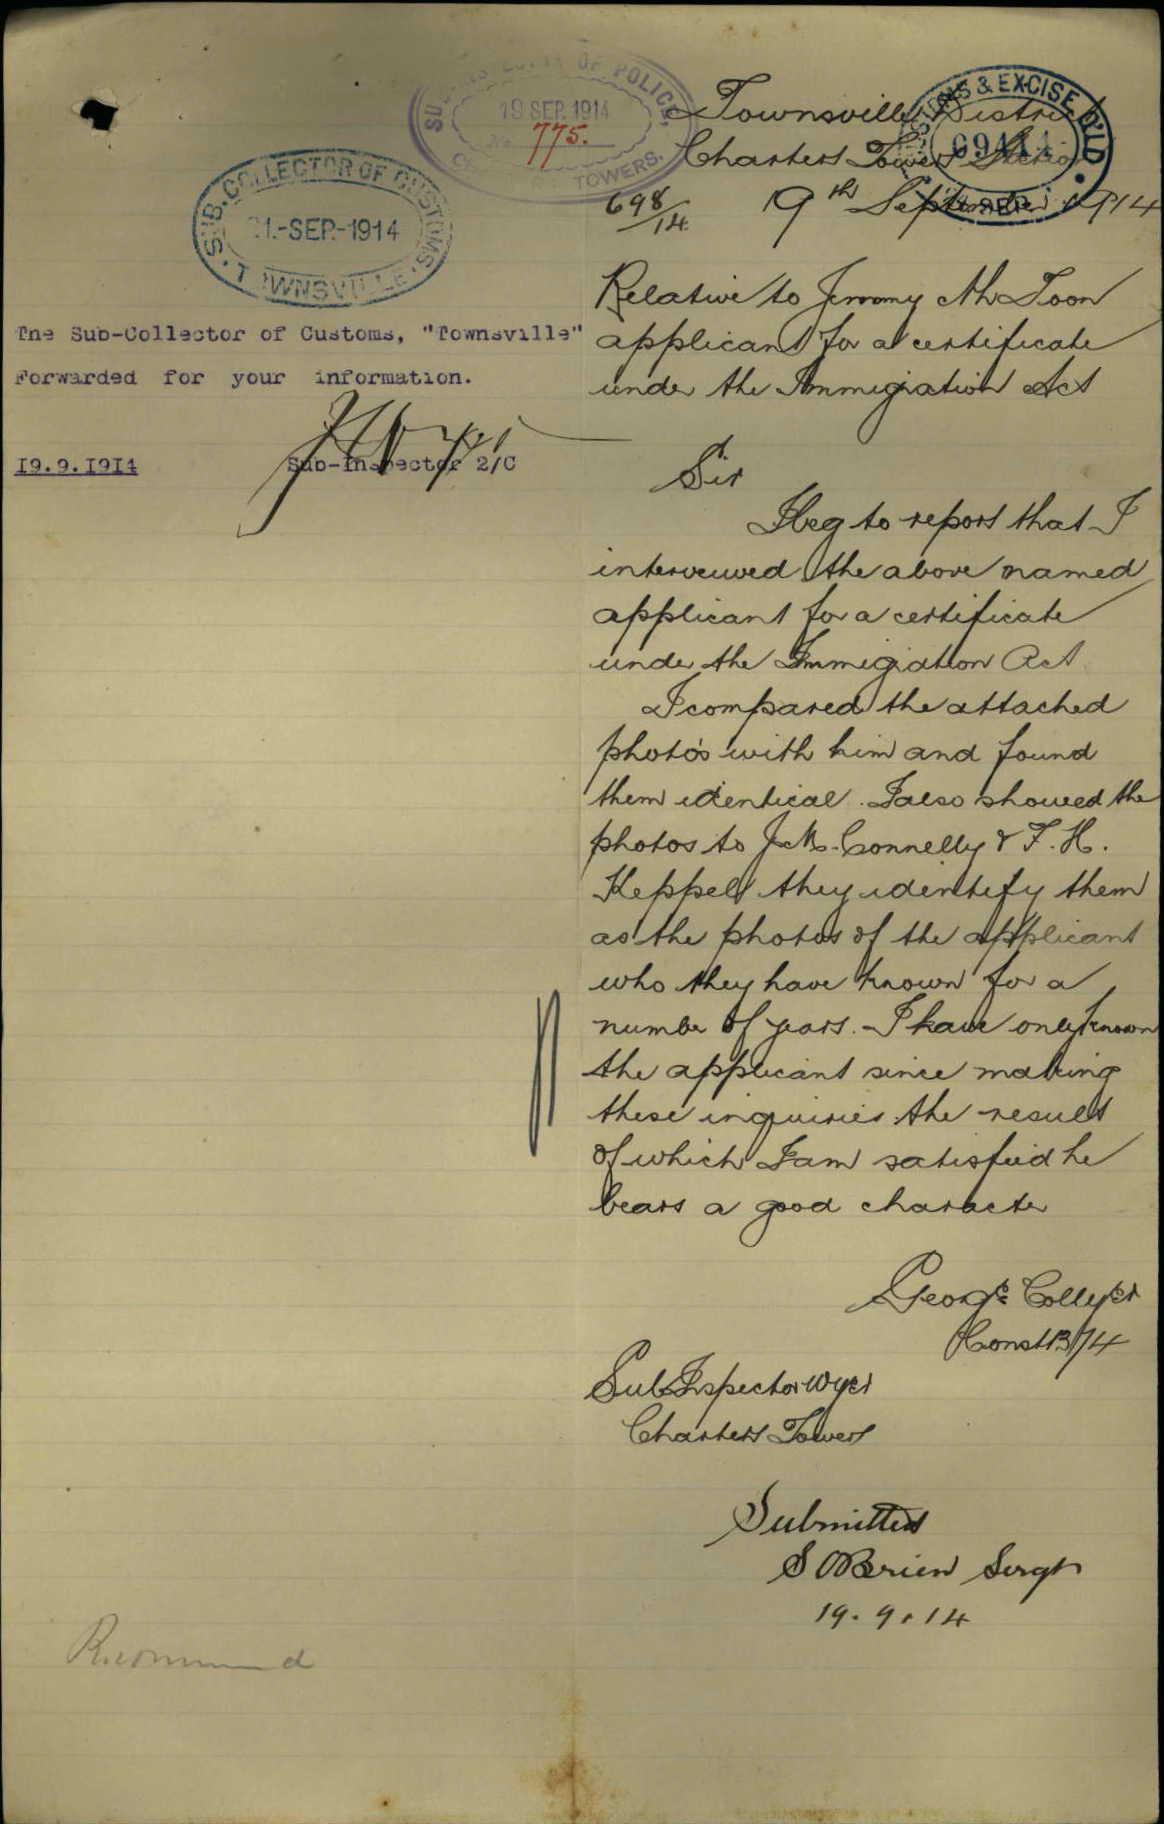 SUB INSPECTOR OF POLICE,
19 SEP. 1914
No. 775.
TOWERS.
CUSTOMS & EXCISE Q'LD
SEP
Townsville District
Charters Towers Station
698/14
19th September 1914
SUB. COLLECTOR OF CUSTOMS.
21.-SEP.-1914
TOWNSVILLE
The Sub-Collector of Customs, "Townsville"
Forwarded for your information.
19.9.1914
Sub-Inspector 2/C
Relative to Jimmy Ah Toon
applicant for a certificate
under the Immigration Act
Sir
I beg to report that I
interveiwed the above named
applicant for a certificate
under the Immigration Act
I compared the attached
photo's with him and found
them identical. I also showed the
photos to J. Mc. Connelly & F. H.
Keppel they identify them
as the photos of the applicant
who they have known for a
number of years. I have only known
the applicant since making
these inquiries the result
of which I am satisfied he
bears a good character
George Collyer
Const 1374
Sub Inspector Wyer
Charters Towers
Submitted
S O'Brien Sergt
19. 9. 14
Recommend